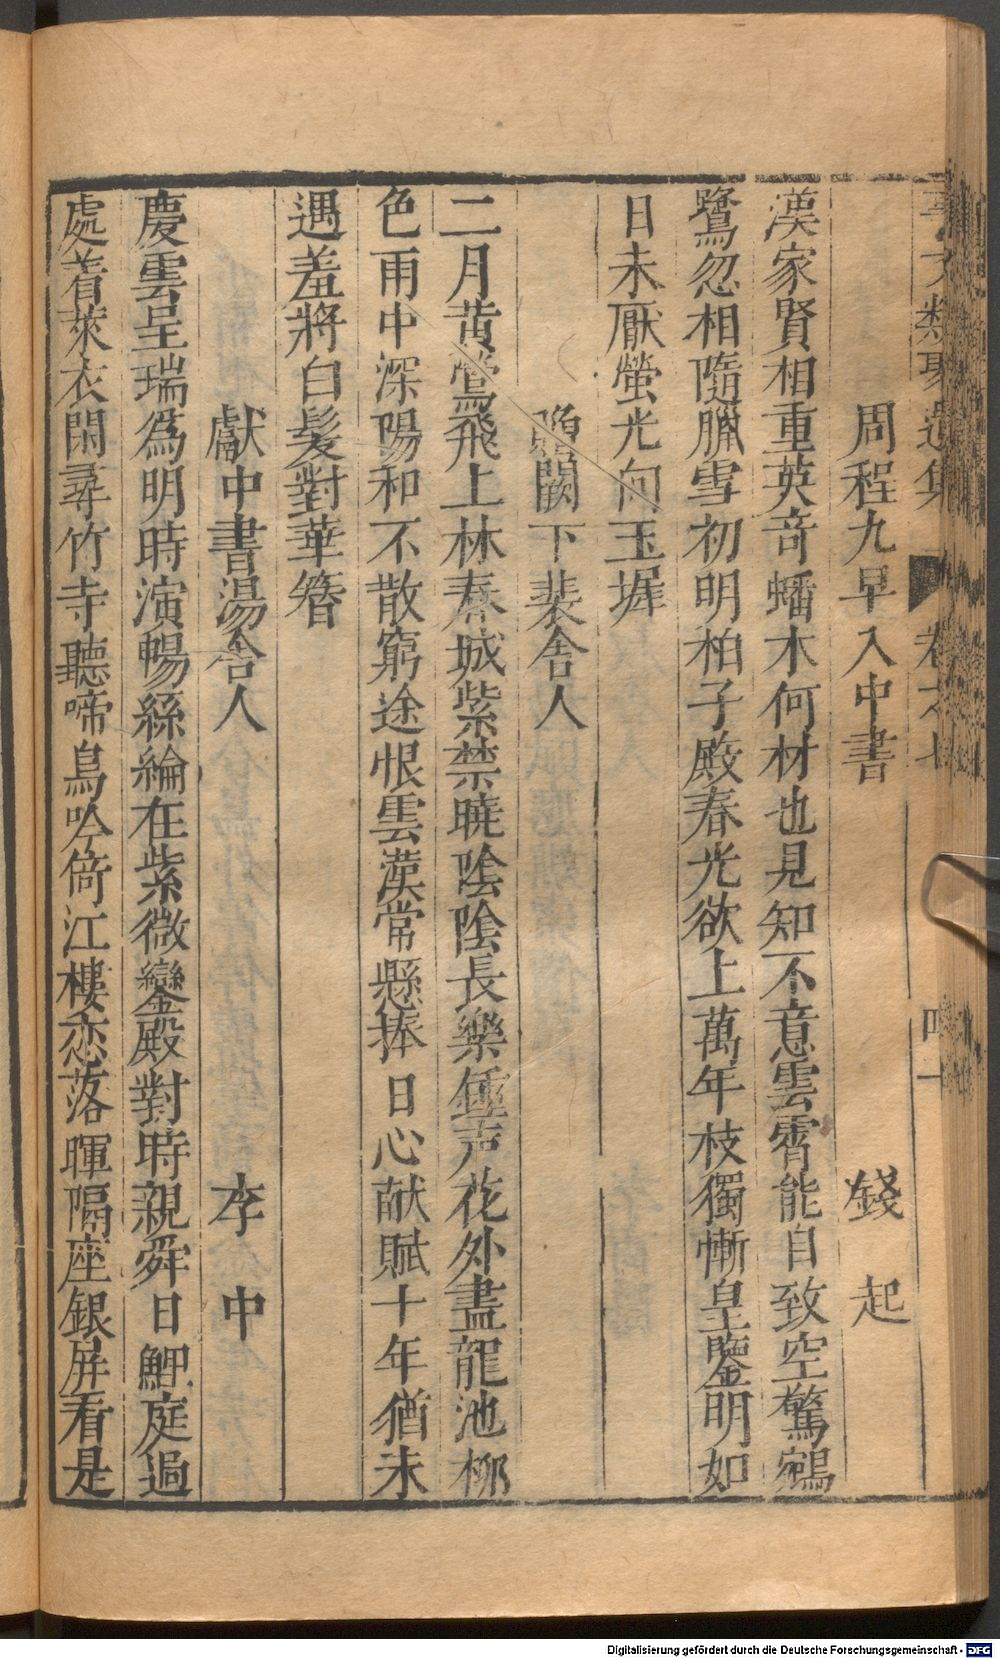 事文類聚遺集 卷之七 四十
周程九早入中書 錢起
漢家賢相重英奇蟠木何材也見知不意雲霄能自致空驚鵷
鷺忽相隨臘雪初明柏子殿春光欲上萬年枝獨慚皇鑒明如
日未厭螢光向玉墀
贈闕下裴舍人
二月黄鶯飛上林春城紫禁曉陰陰長樂鍾声花外盡龍池柳
色雨中深陽和不散窮途恨雲漢常懸捧日心献賦十年猶未
遇羞將白髮對華簪
獻中書湯舍人 李中
慶雲呈瑞爲明時演暢絲綸在紫微鑾殿對時親舜日鯉庭過
處着萊衣閑尋竹寺聽啼鳥吟倚江樓恋落暉隔座銀屏看是
Digitalisierung gefördert durch die Deutsche Forschungsgemeinschaft - DFG